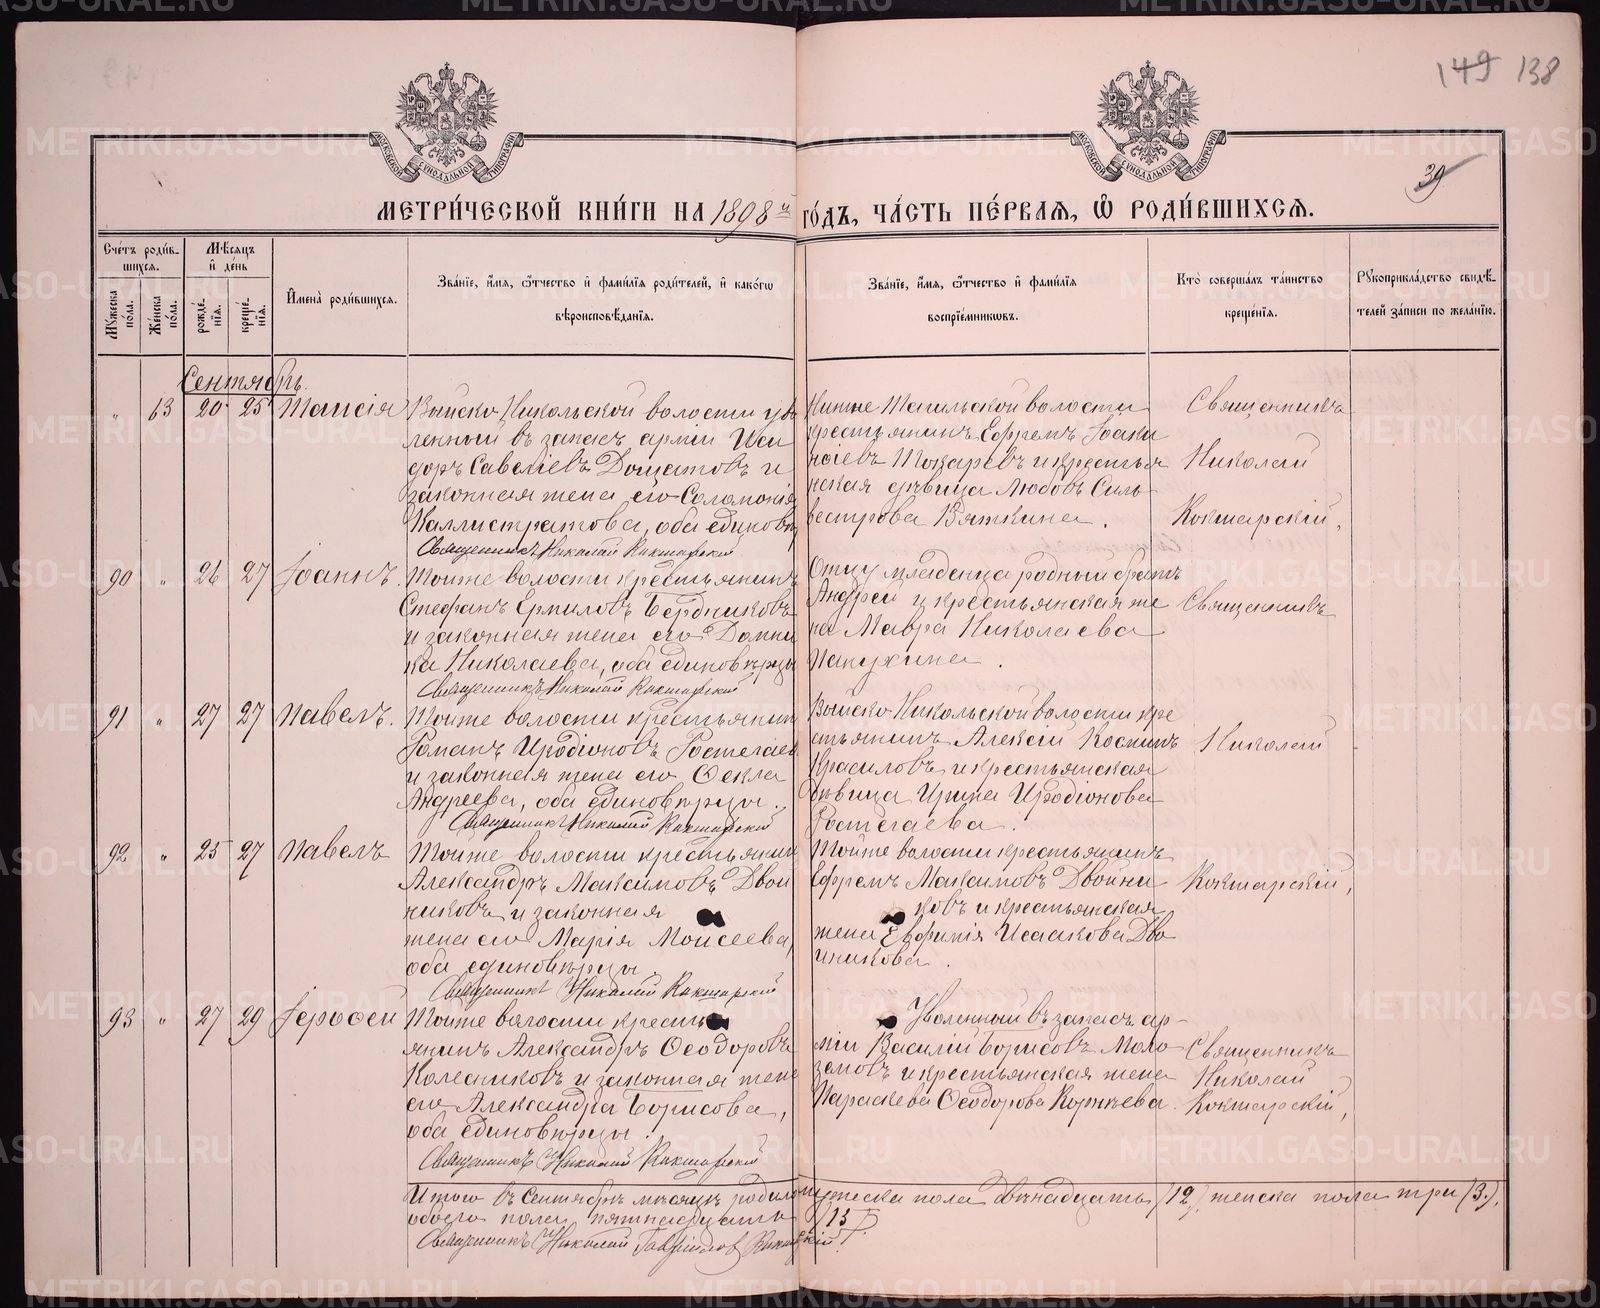 149 138
39
МОСКОВСКОЙ СѴНОДАЛЬНОЙ ТИПОГРАФІИ
МОСКОВСКОЙ СѴНОДАЛЬНОЙ ТИПОГРАФІИ
МЕТРИ́ЧЕСКОЙ КНИ́ГИ НА 1898 й ГО́ДЪ, ЧА́СТЬ ПЕ́РВАЯ, Ѽ РОДИ́ВШИХСЯ.
Сче́тъ роди́в-
шихся.
Мѣ́сяцъ
и҆ де́нь
Му́жеска по́ла.
Же́нска по́ла.
рожде́нїя.
креще́нїя.
И҆мена̀ роди́вшихся.
Зва́нїе, и҆́мя, ѻ҆́тчество и҆ фами́лїя роди́телей, и҆ како́гѡ
вѣроисповѣ́данїя.
Зва́нїе, и҆́мя, ѻ҆́тчество и҆ фами́лїя
воспрїе́мникѡвъ.
Кто̀ соверша́лъ та́инство
креще́нїя.
Рꙋкоприкла́дство свидѣ́-
телей за́писи по жела́нїю.
Сентябрь.
" 63 20 25 Таисія
Выйско-Никольской волости уво
ленный въ запасъ арміи Иси
доръ Савеліевъ Долматовъ и
законная жена его Соломонія
Каллистратова, оба единовѣр
Священникъ Николай Кокшарскій
Нижне Тагильской волости
крестьянинъ Ефремъ Іоаки
мовъ Токаревъ и крестья
нская дѣвица Любовь Силь
вестрова Вяткина.
Священникъ
Николай
Кокшарскій,
90 " 26 27 Іоаннъ.
Тойже волости крестьянинъ
Стефанъ Ермиловъ Бердниковъ
и законная жена его Домни
ка Николаева, оба единовѣрцы
Священникъ Николай Кокшарскій
Отцу младенца родный братъ
Андрей и крестьянская же
на Мавра Николаева
Священникъ
91 " 27 27 Павелъ.
Тойже волости крестьянин
Романъ Иродіоновъ Ростегаев
и законная жена его Ѳекла
Андреева, оба единовѣрцы.
Священникъ Николай Кокшарскій
Выйско-Никольской волости кре
стьянинъ Алексій Космин
Красиловъ и крестьянская
дѣвица Ирина Иродіонова
Ростегаева.
Николай
92 " 25 27 Павелъ
Тойже волости крестьянин
Александръ Максимовъ Двой
никовъ и законная
жена его Марія Моисеева,
оба единовѣрцы
Священникъ Николай Кокшарскій
Тойже волости крестьянинъ
Ефремъ Максимовъ Двойни
ковъ и крестьянская
жена Евфимія Исаакова Дво
йникова.
Кокшарскій,
93 " 27 29 Іероѳей
Тойже волости кресть
янинъ Александръ Ѳеодоровъ
Колесниковъ и законная жена
его Александра Борисова,
оба единовѣрцы.
Священникъ Николай Кокшарскій
Уволенный въ запасъ ар-
міи Василій Борисовъ Моло
земовъ и крестьянская жена
Параскева Ѳеодорова Корнѣева.
Священникъ
Николай
Кокшарскій,
Итого въ Сентябрѣ мѣсяцѣ родилось мужеска пола двѣнадцать (12), женска пола три (3).
обоего пола пятнадцать (15).
Священникъ Николай Гавріиловъ Кокшарскій.
METRIKI.GASO-URAL.RU